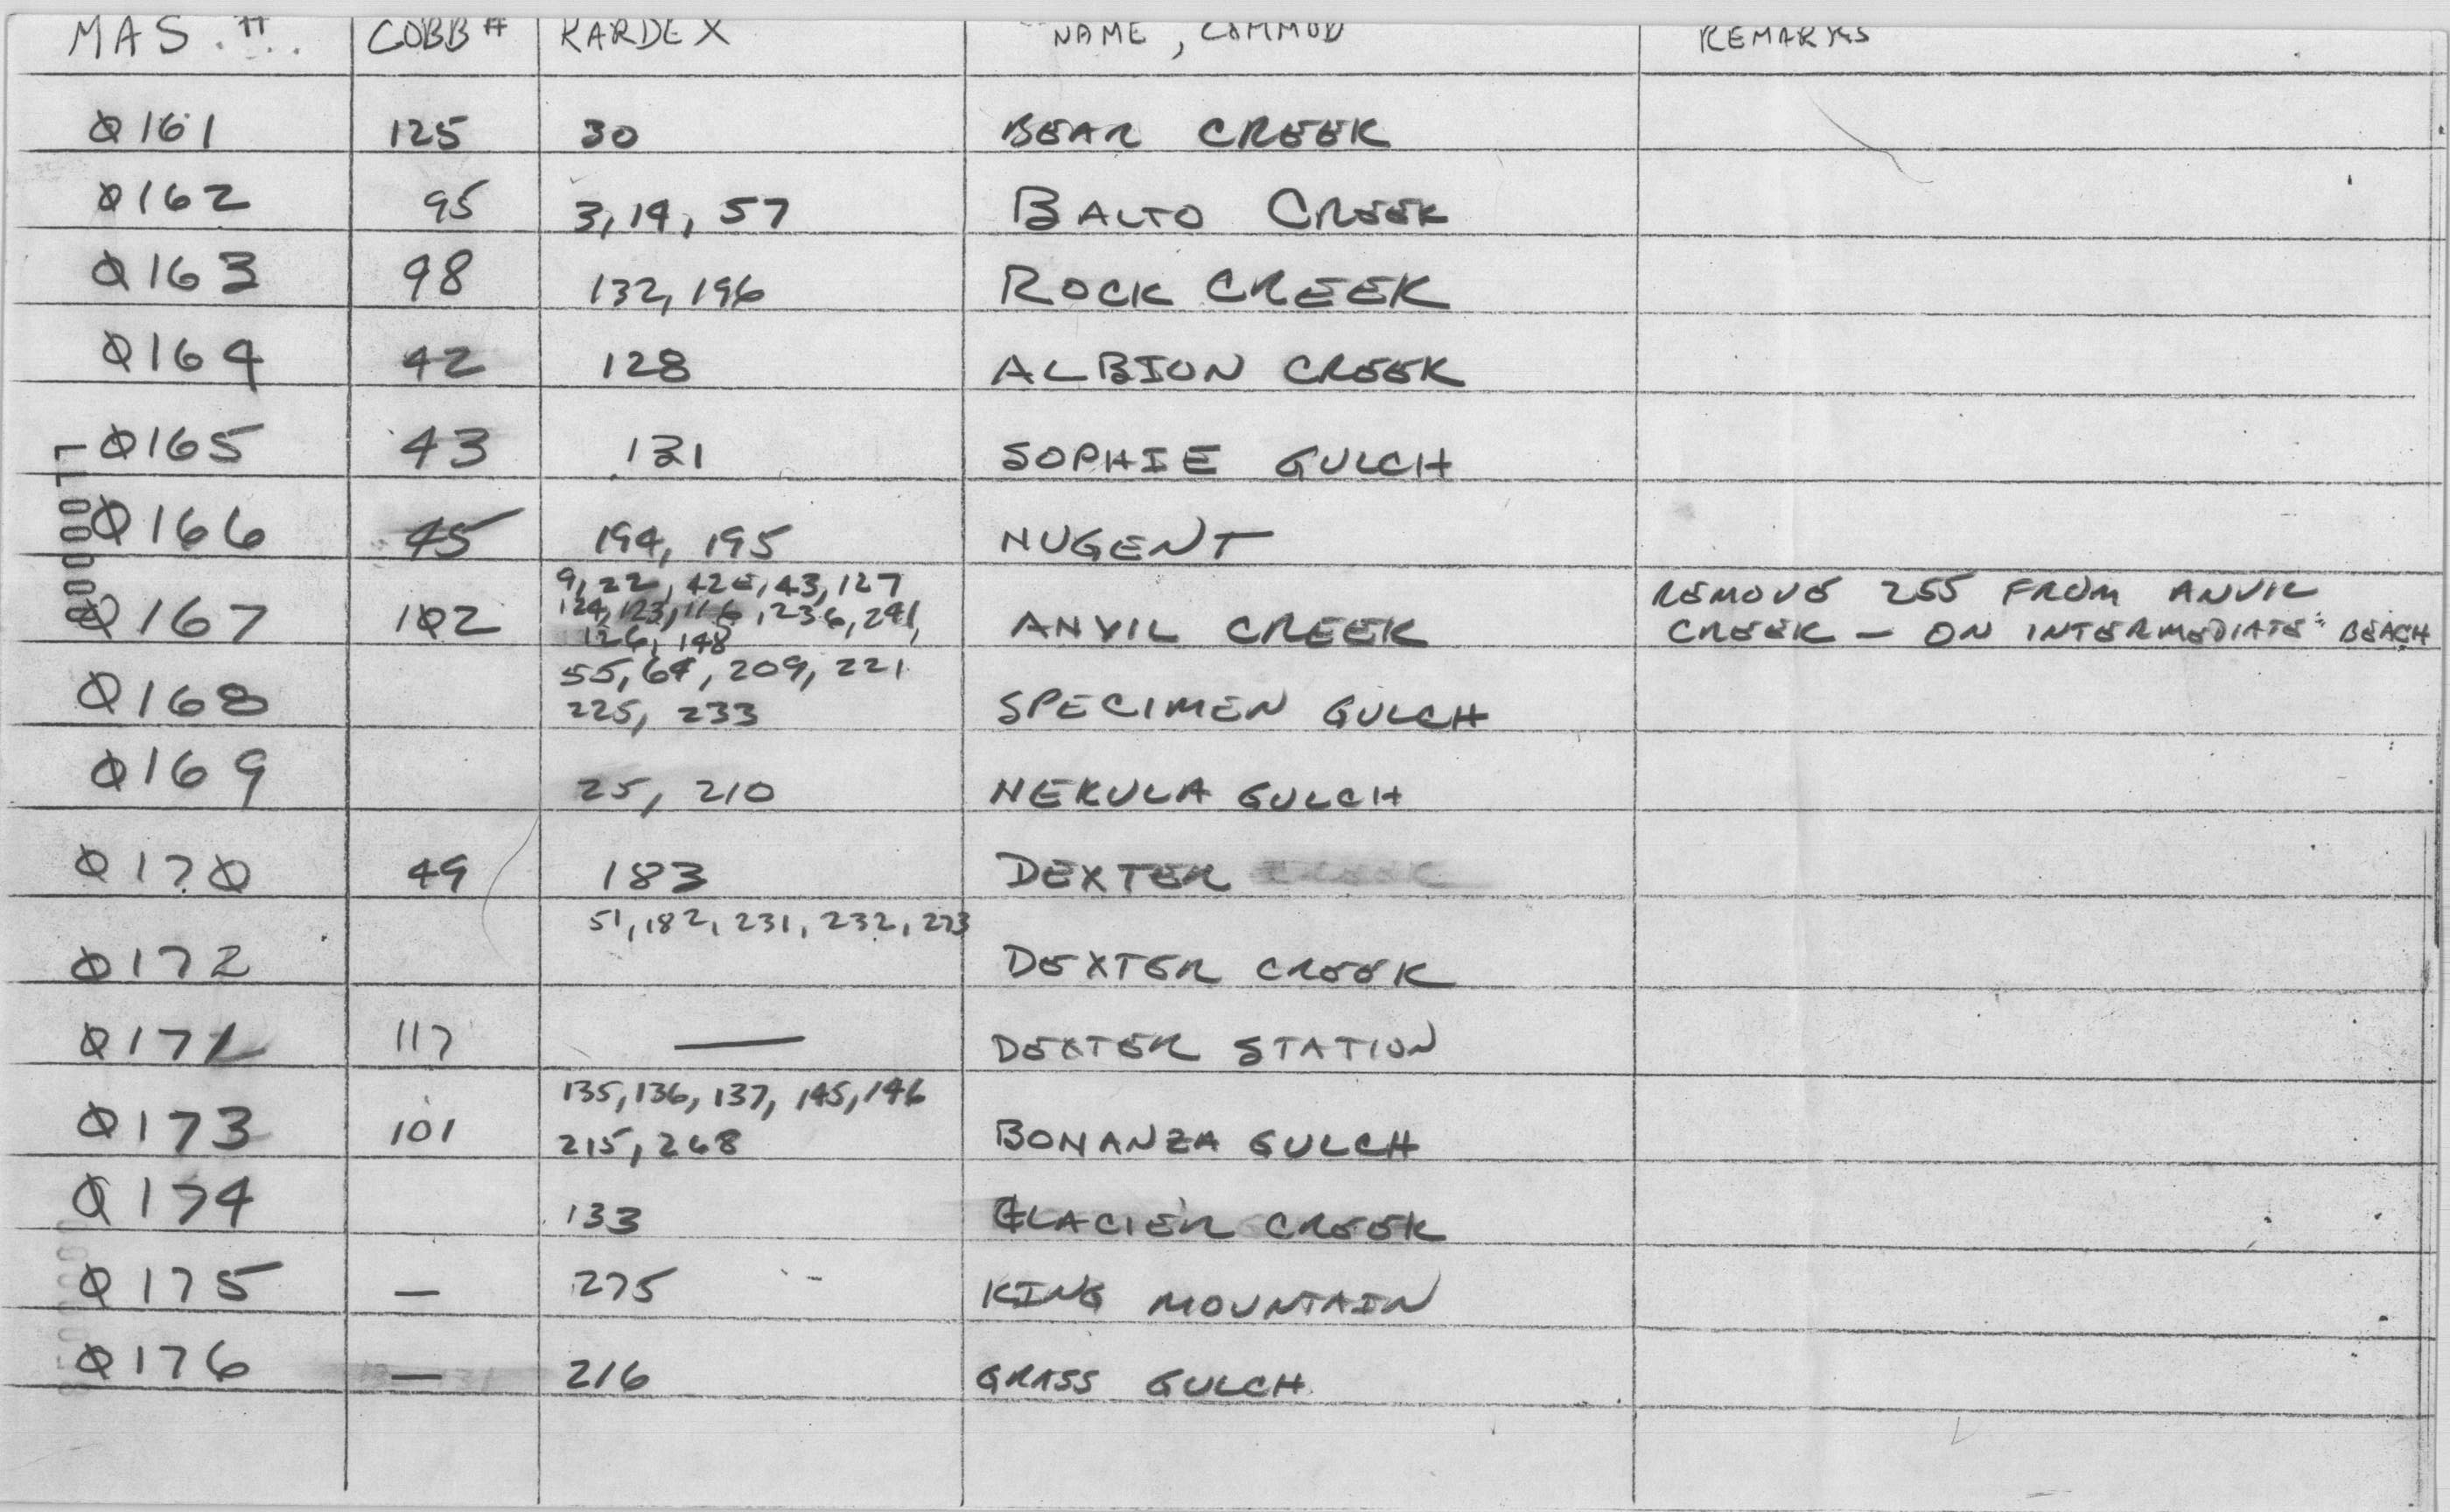 MAS. # COBB # KARDEX NAME, COMMOD REMARKS
Ø161 125 30 BEAR CREEK
Ø162 95 3, 14, 57 BALTO CREEK
Ø163 98 132, 196 ROCK CREEK
Ø164 42 128 ALBION CREEK
Ø165 43 131 SOPHIE GULCH
Ø166 45 194, 195 NUGENT
9, 22, 42E, 43, 127
Ø167 102 124, 123, 116, 236, 241, ANVIL CREEK REMOVE 255 FROM ANVIL
126, 148 CREEK — ON INTERMEDIATE BEACH
55, 64, 209, 221
Ø168 225, 233 SPECIMEN GULCH
Ø169 25, 210 NEKULA GULCH
Ø17Ø 49 183 DEXTER
51, 182, 231, 232, 273
Ø172 DEXTER CREEK
Ø171 117 — DEXTER STATION
135, 136, 137, 145, 146
Ø173 101 215, 268 BONANZA GULCH
Ø174 133 GLACIER CREEK
Ø175 — 275 KING MOUNTAIN
Ø176 — 216 GRASS GULCH